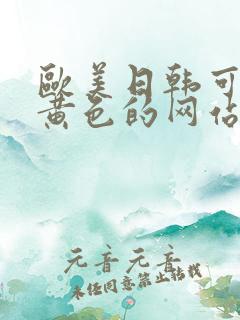 歐美日韩可
黄色的网佔
元音元音
未经同意禁止转载